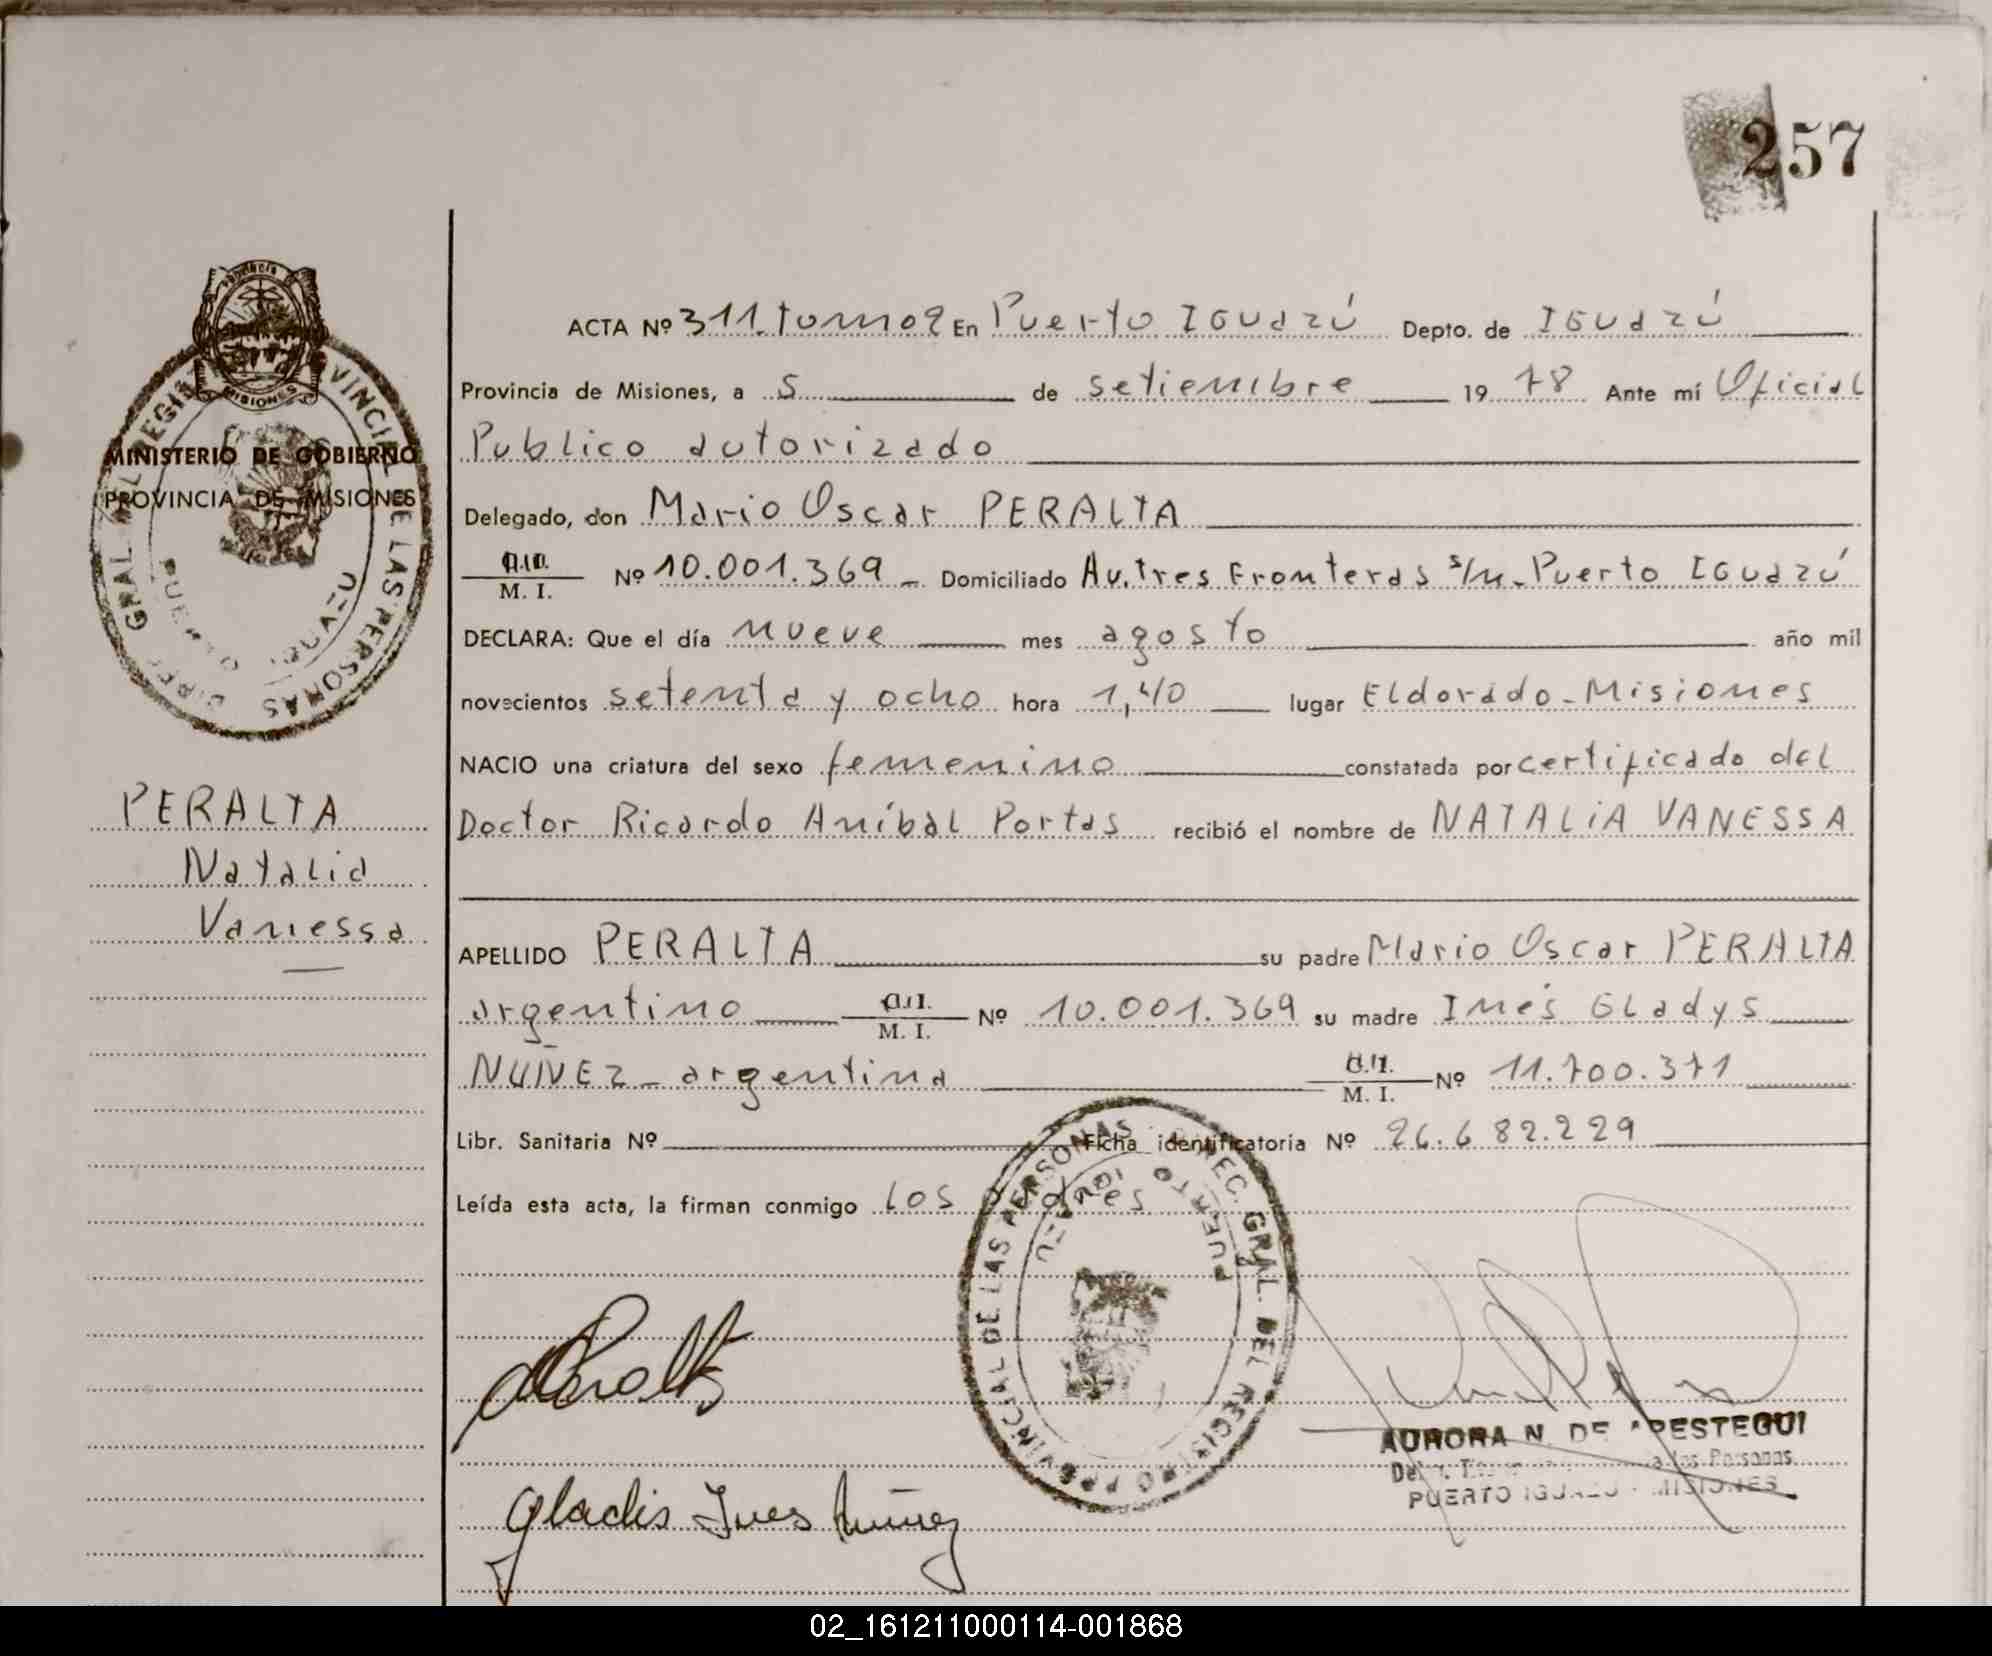 257
ACTA Nº 311. tomo 2 En Puerto Iguazú Depto. de Iguazú
Provincia de Misiones, a 5 de setiembre 1978 Ante mí Oficial
Publico autorizado
Delegado, don Mario Oscar PERALTA
M. I. Nº 10.001.369 Domiciliado Av. Tres Fronteras s/n - Puerto Iguazú
DECLARA: Que el día nueve mes agosto año mil
novecientos setenta y ocho hora 1,40 lugar Eldorado - Misiones
NACIO una criatura del sexo femenino constatada por certificado del
Doctor Ricardo Aníbal Portas recibió el nombre de NATALIA VANESSA
APELLIDO PERALTA su padre Mario Oscar PERALTA
argentino M. I. Nº 10.001.369 su madre Inés Gladys
NUÑEZ - argentina M. I. Nº 11.700.371
Libr. Sanitaria Nº Ficha identificatoria Nº 26.682.229
Leída esta acta, la firman conmigo los padres
Peralta
Gladis Ines Nuñez
AURORA N. DE APESTEGUI
PUERTO IGUAZU - MISIONES
DIREC. GRAL. DEL REGISTRO PROVINCIAL DE LAS PERSONAS
PUERTO IGUAZU
Provincia
MISIONES
MINISTERIO DE GOBIERNO
PROVINCIA DE MISIONES
DIREC. GRAL. DEL REGISTRO PROVINCIAL DE LAS PERSONAS
PUERTO IGUAZU
PERALTA
Natalia
Vanessa
02_161211000114-001868